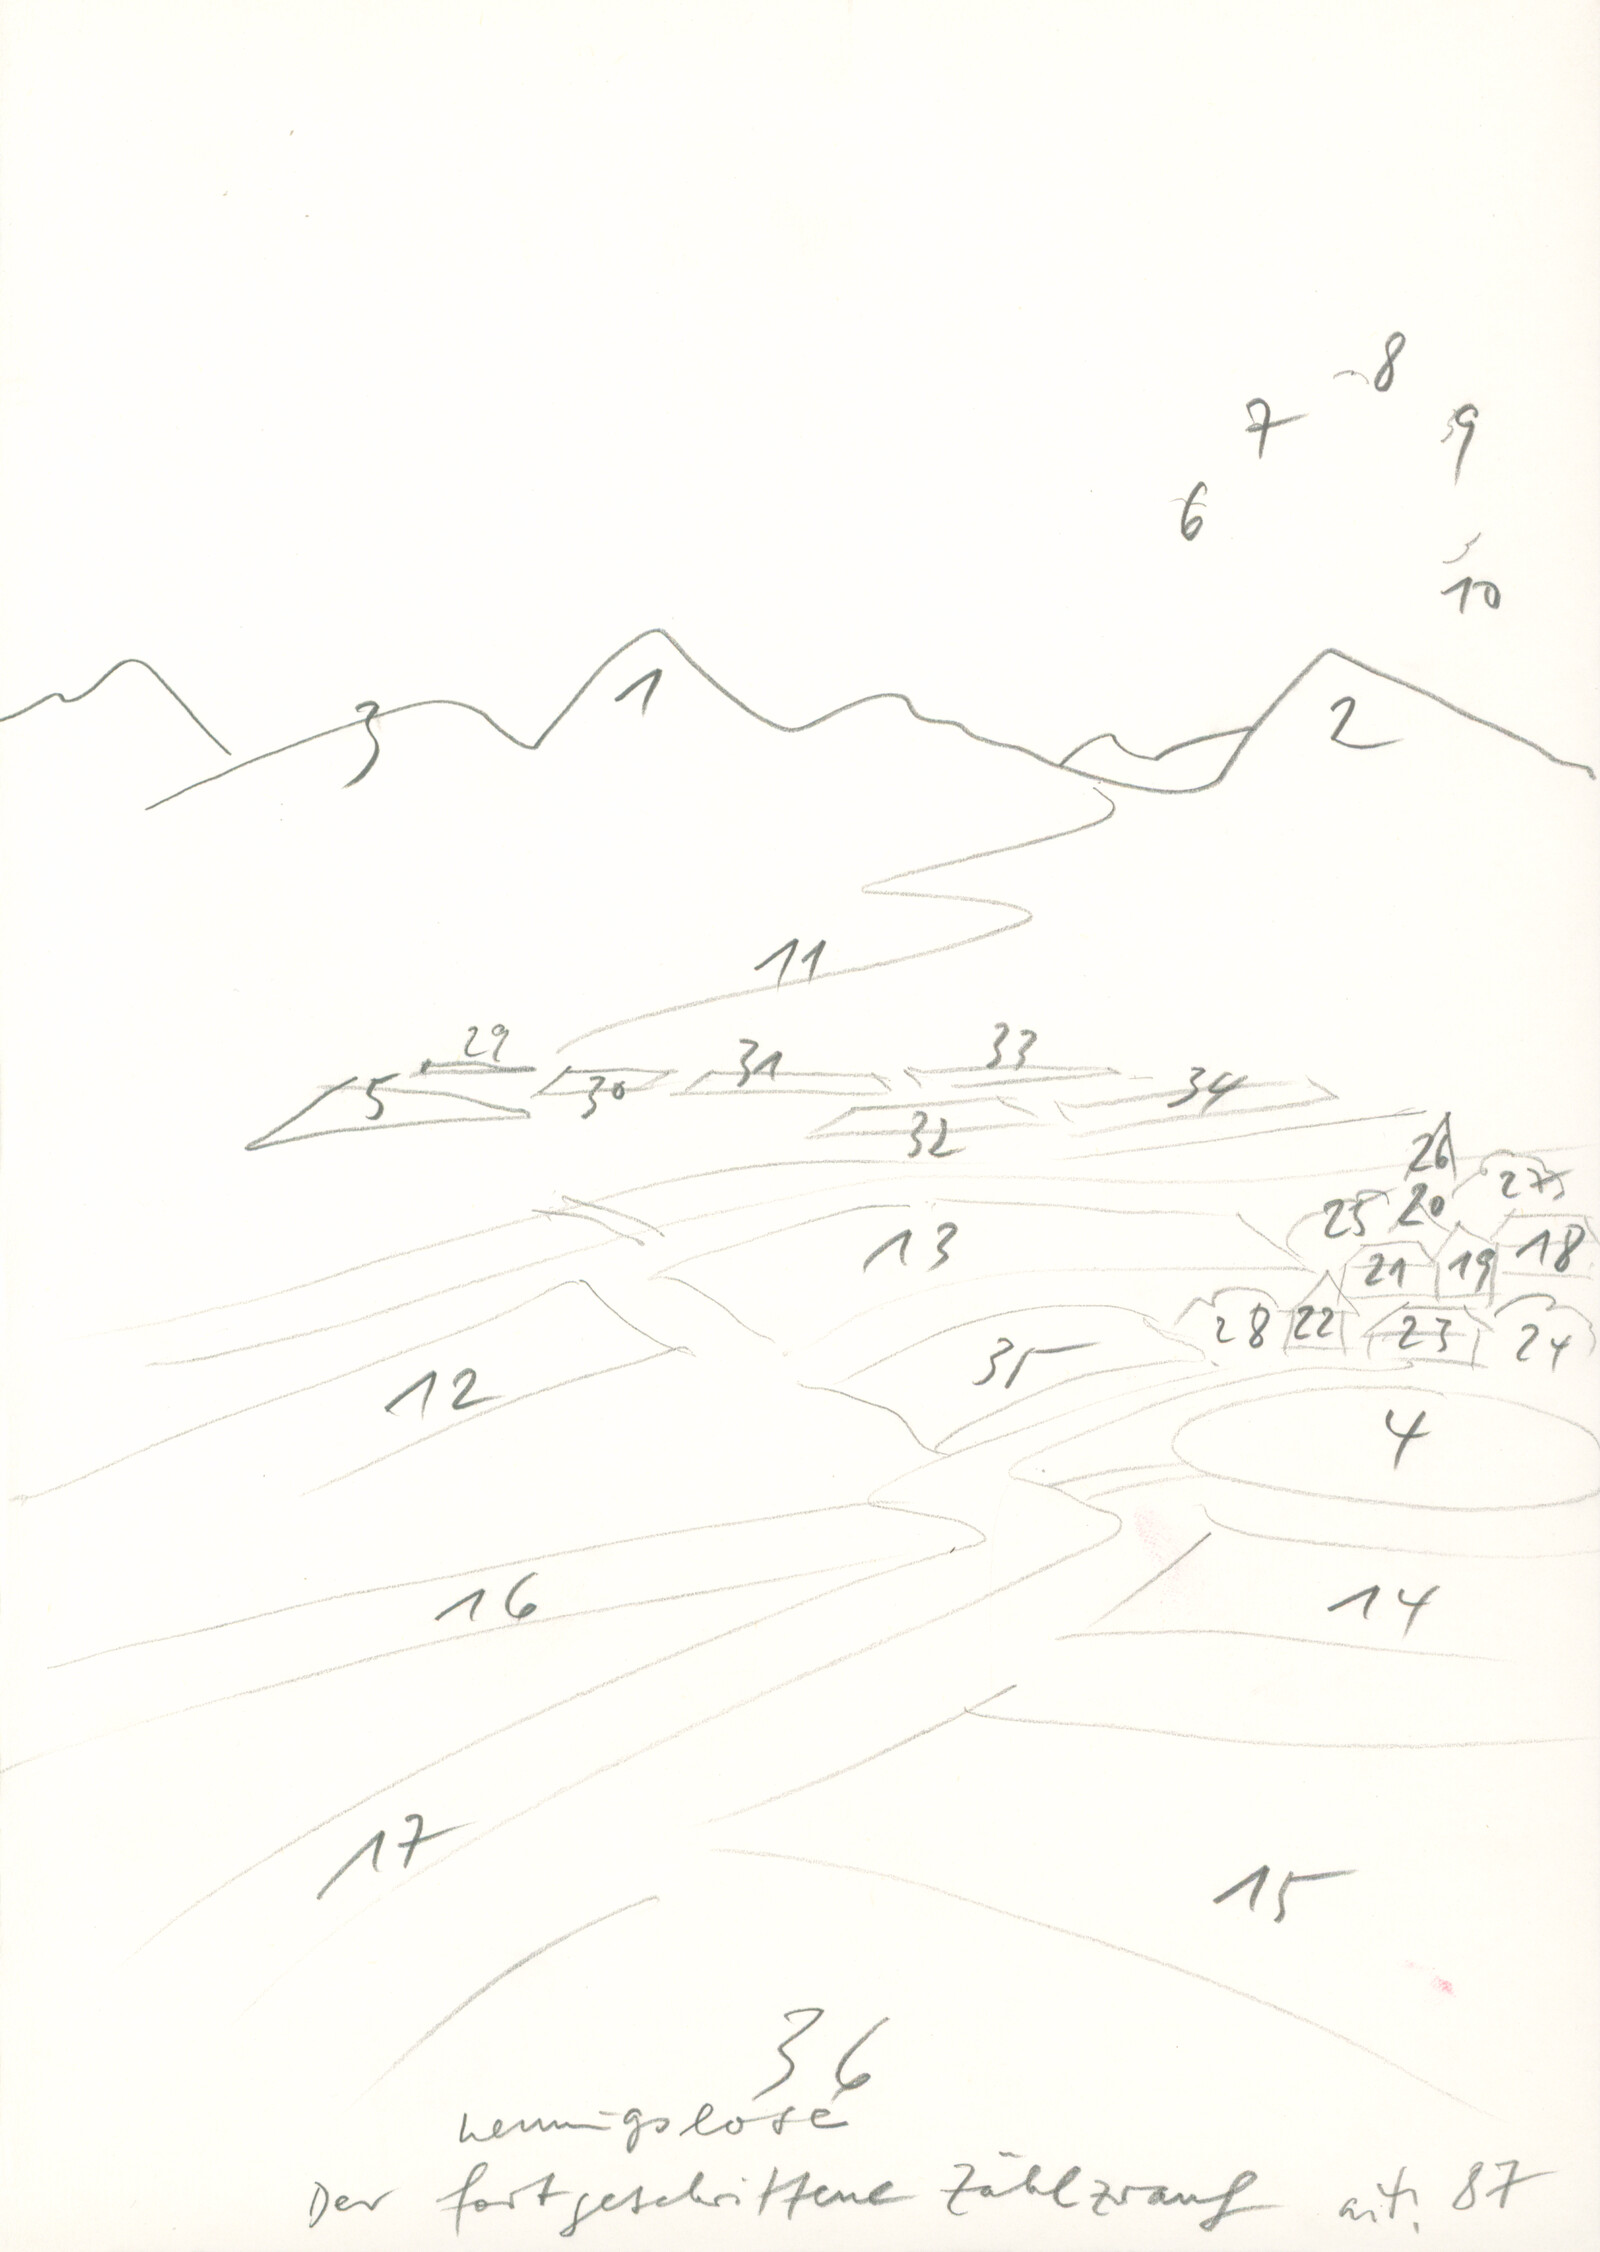 8
7
9
6
10
1
2
3
11
29
33
31
5
30
34
32
26
27
25
20
13
21
19
18
28
22
23
24
35
12
4
16
14
17
15
36
hemmungslose
Der fortgeschrittene Zählzwang 87